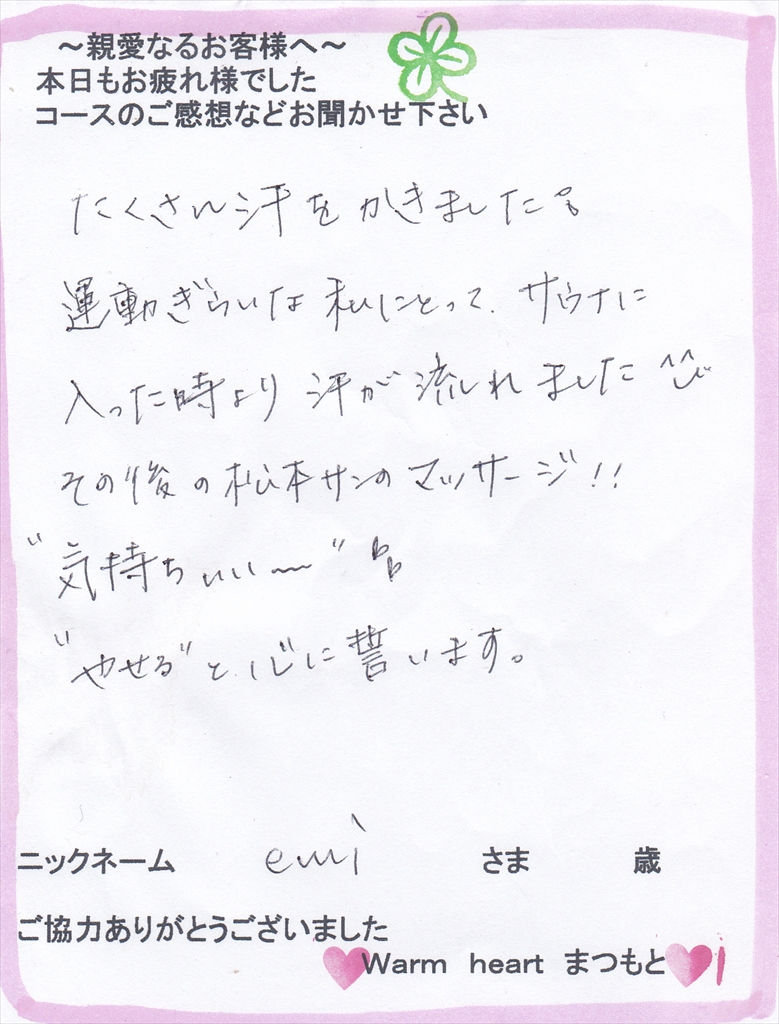 ～親愛なるお客様へ～
本日もお疲れ様でした
コースのご感想などお聞かせ下さい
たくさん汗をかきました。
運動ぎらいな私にとって、サウナに
入った時より汗が流れました^^
その後の松本サンのマッサージ!!
"気持ちいい〜"
"やせる"と心に誓います。
ニックネーム emi さま 歳
ご協力ありがとうございました
Warm heart まつもと